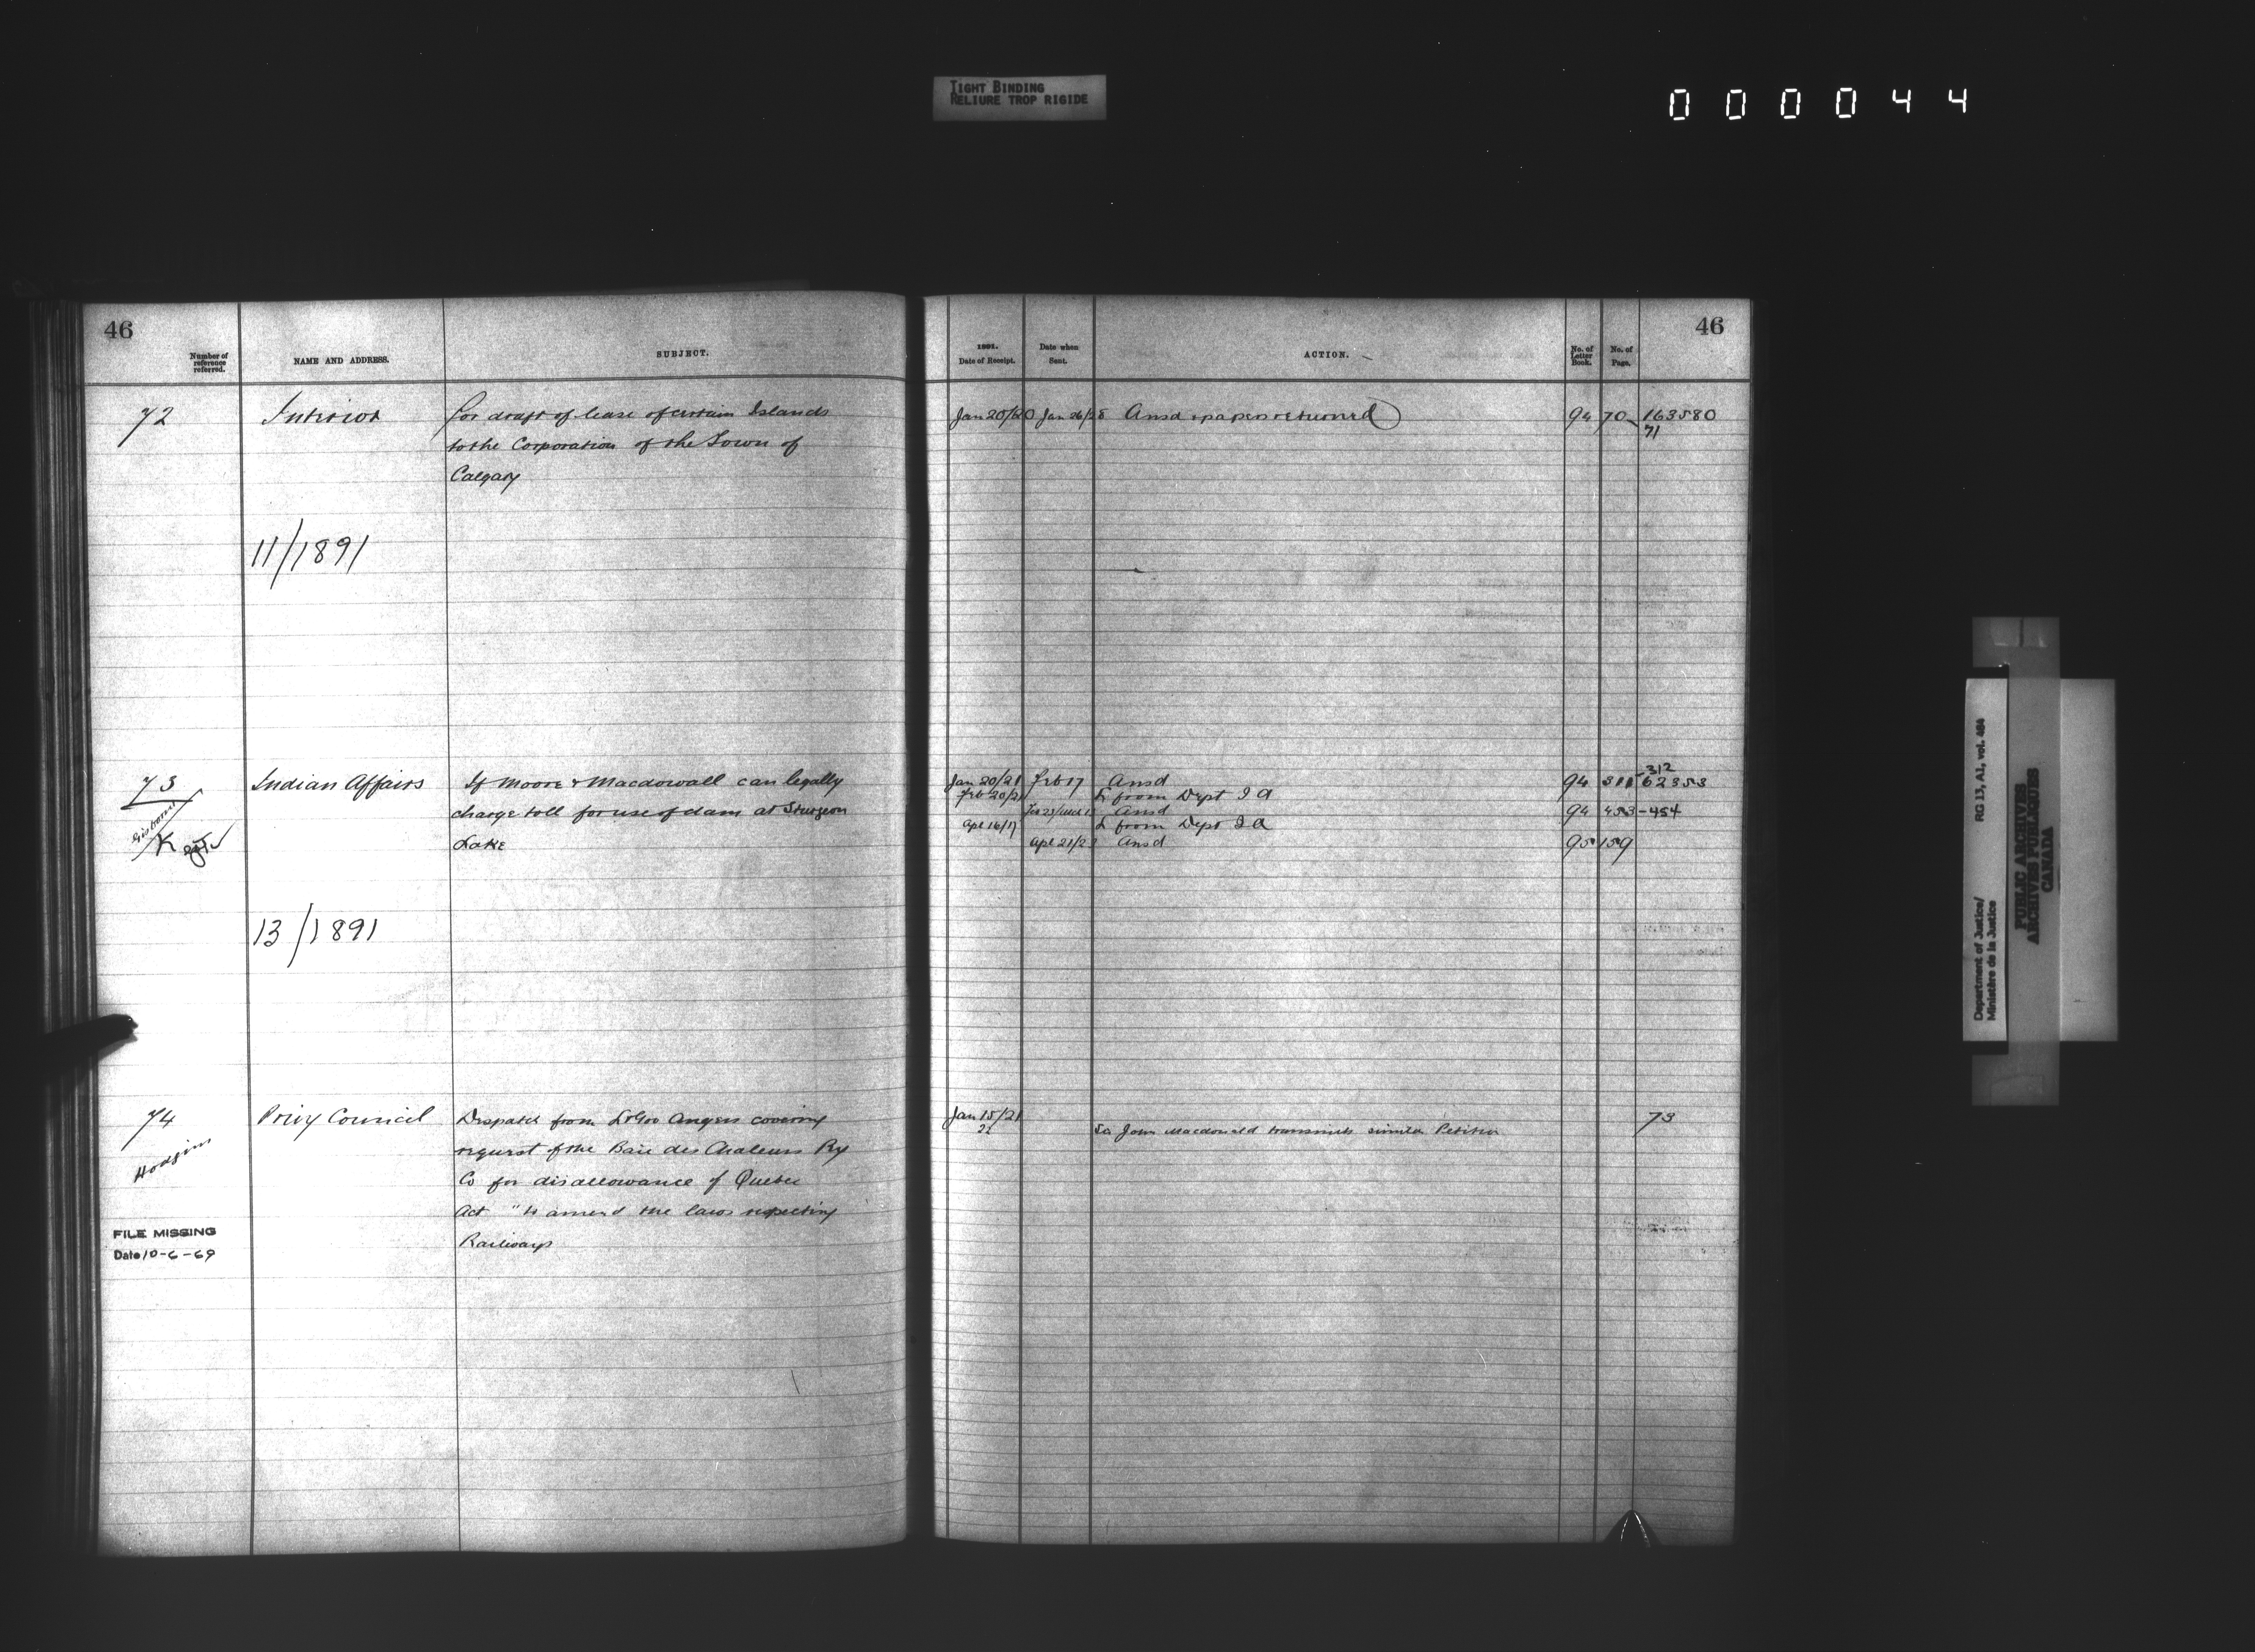 TIGHT BINDING
RELIURE TROP RIGIDE
000044
46
Number of reference referred.
NAME AND ADDRESS.
SUBJECT.
72
Interior
for draft of lease of certain Islands
to the Corporation of the Town of
Calgary
11/1891
73
Gisborne
Indian Affairs
If Moore & Macdowall can legally
charge toll for use of dam at Sturgeon
Lake
13/1891
74
Hodgins
Privy Council
Despatch from Lt Gov Angers covering
request of the Baie des Chaleurs Ry
Co for disallowance of Quebec
Act "to amend the laws respecting
Railways
FILE MISSING
Date 10-6-69
46
1891.
Date of Receipt.
Date when Sent.
ACTION.
No. of Letter Book.
No. of Page.
Jan 20/20 Jan 26/28 Ansd & papers returned 94 70 163580
71
312
Jan 20/21 Feb 17 Ansd 94 311 62353
Feb 20/21 L from Dept I A
Ansd 94 453-454
Apl 16/17 L from Dept I A
Apl 21/23 Ansd 95 159
Jan 15/21 73
22 Sir John Macdonald transmits similar Petition
Department of Justice/
Ministère de la Justice
RG 13, A1, vol. 464
PUBLIC ARCHIVES
ARCHIVES PUBLIQUES
CANADA